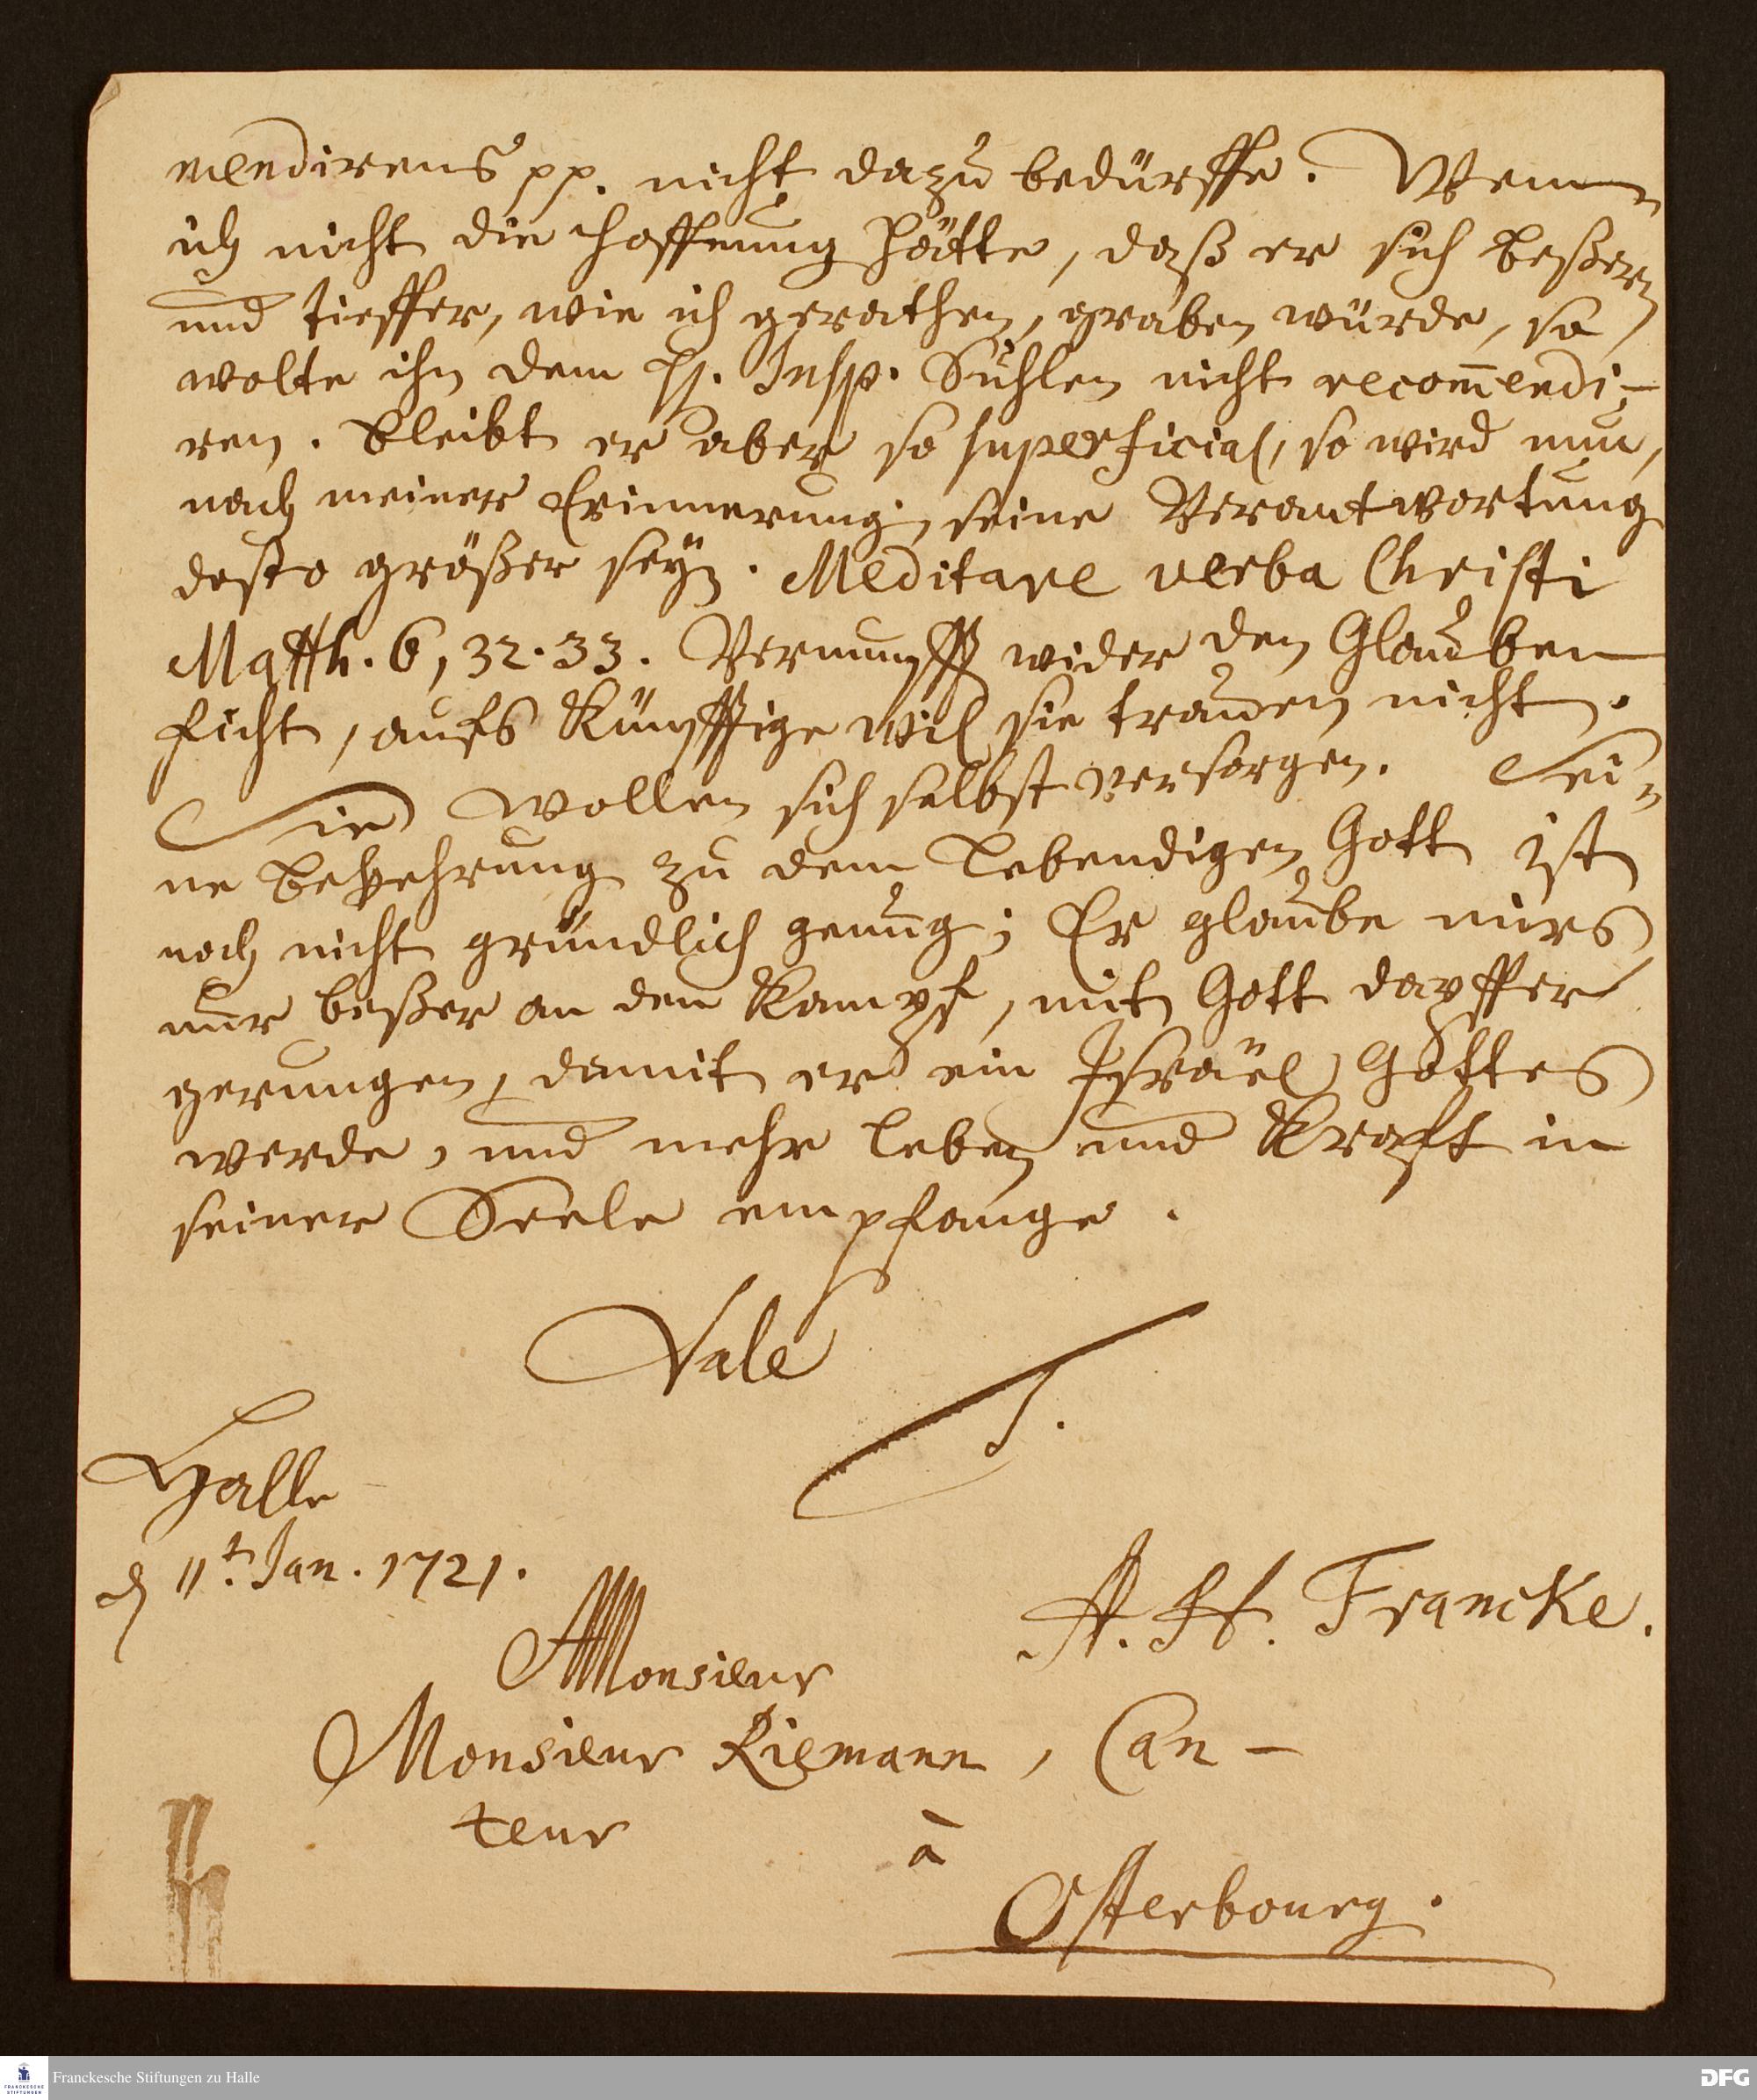 mendirens pp. nicht dazu bedürffe. Wenn
ich nicht die Hoffnung hätte, daß er sich beßern
und tieffer, wie ich gerathen, graben würde, so
wolte ihn dem H. Insp. Suhlen nicht recom̄endi-
ren. Bleibt er aber so superficial, so wird nun,
nach meiner Erinnerung, seine Verantwortung
desto größer seyn. Meditare verba Christi
Matth. 6, 32. 33. Vernunfft wider den Glauben
ficht, aufs Künfftige wil sie trauen nicht.
Sie wollen sich selbst versorgen. Sei-
ne Bekehrung zu dem lebendigen Gott ist
noch nicht gründlich genug; Er glaube mirs
nur beßer an den Kampf, mit Gott dapffer
gerungen, damit er ein Israël Gottes
werde, und mehr Leben und Krafft in
seiner Seele empfange.
Vale
Halle
d 11t. Jan. 1721.
A. H. Francke.
Monsieur
Monsieur Riemann, Can-
teur
à
Osterbourg.
FRANCKESCHE STIFTUNGEN
Franckesche Stiftungen zu Halle
DFG